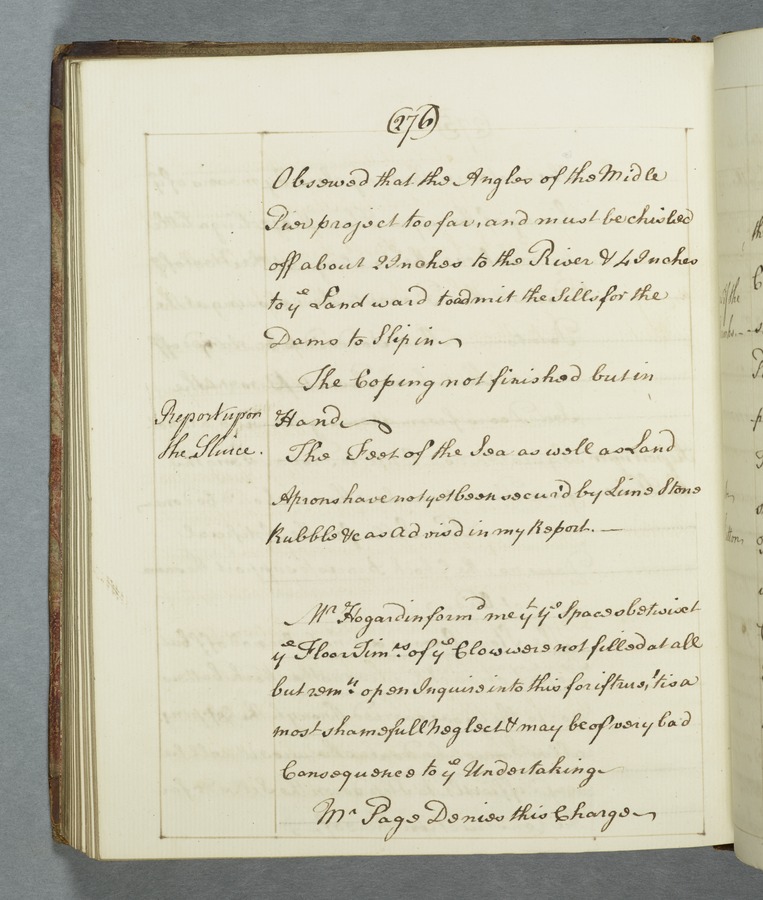 (276)
Observed that the Angles of the Midle
Pier project too far, and must be chisled
off about 2 Inches to the River & 4 Inches
to yᵉ Land ward to admit the Sills for the
Dams to Slip in
The Coping not finished but in
Hand
Report upon
the Sluice.
The Feet of the Sea as well as Land
Aprons have not yet been secur'd by Lime Stone
Rubble &c as Advis'd in my Report. —
Mʳ Hogard inform'd me yᵗ yᵉ Spaces betwixt
yᵉ Floor Timᵇˢ of yᵉ Clow were not filled at all
but remⁿ open Inquire into this for if true, 'tis a
most shamefull neglect & may be of very bad
Consequence to yᵉ Undertaking
Mʳ Page Denies this Charge